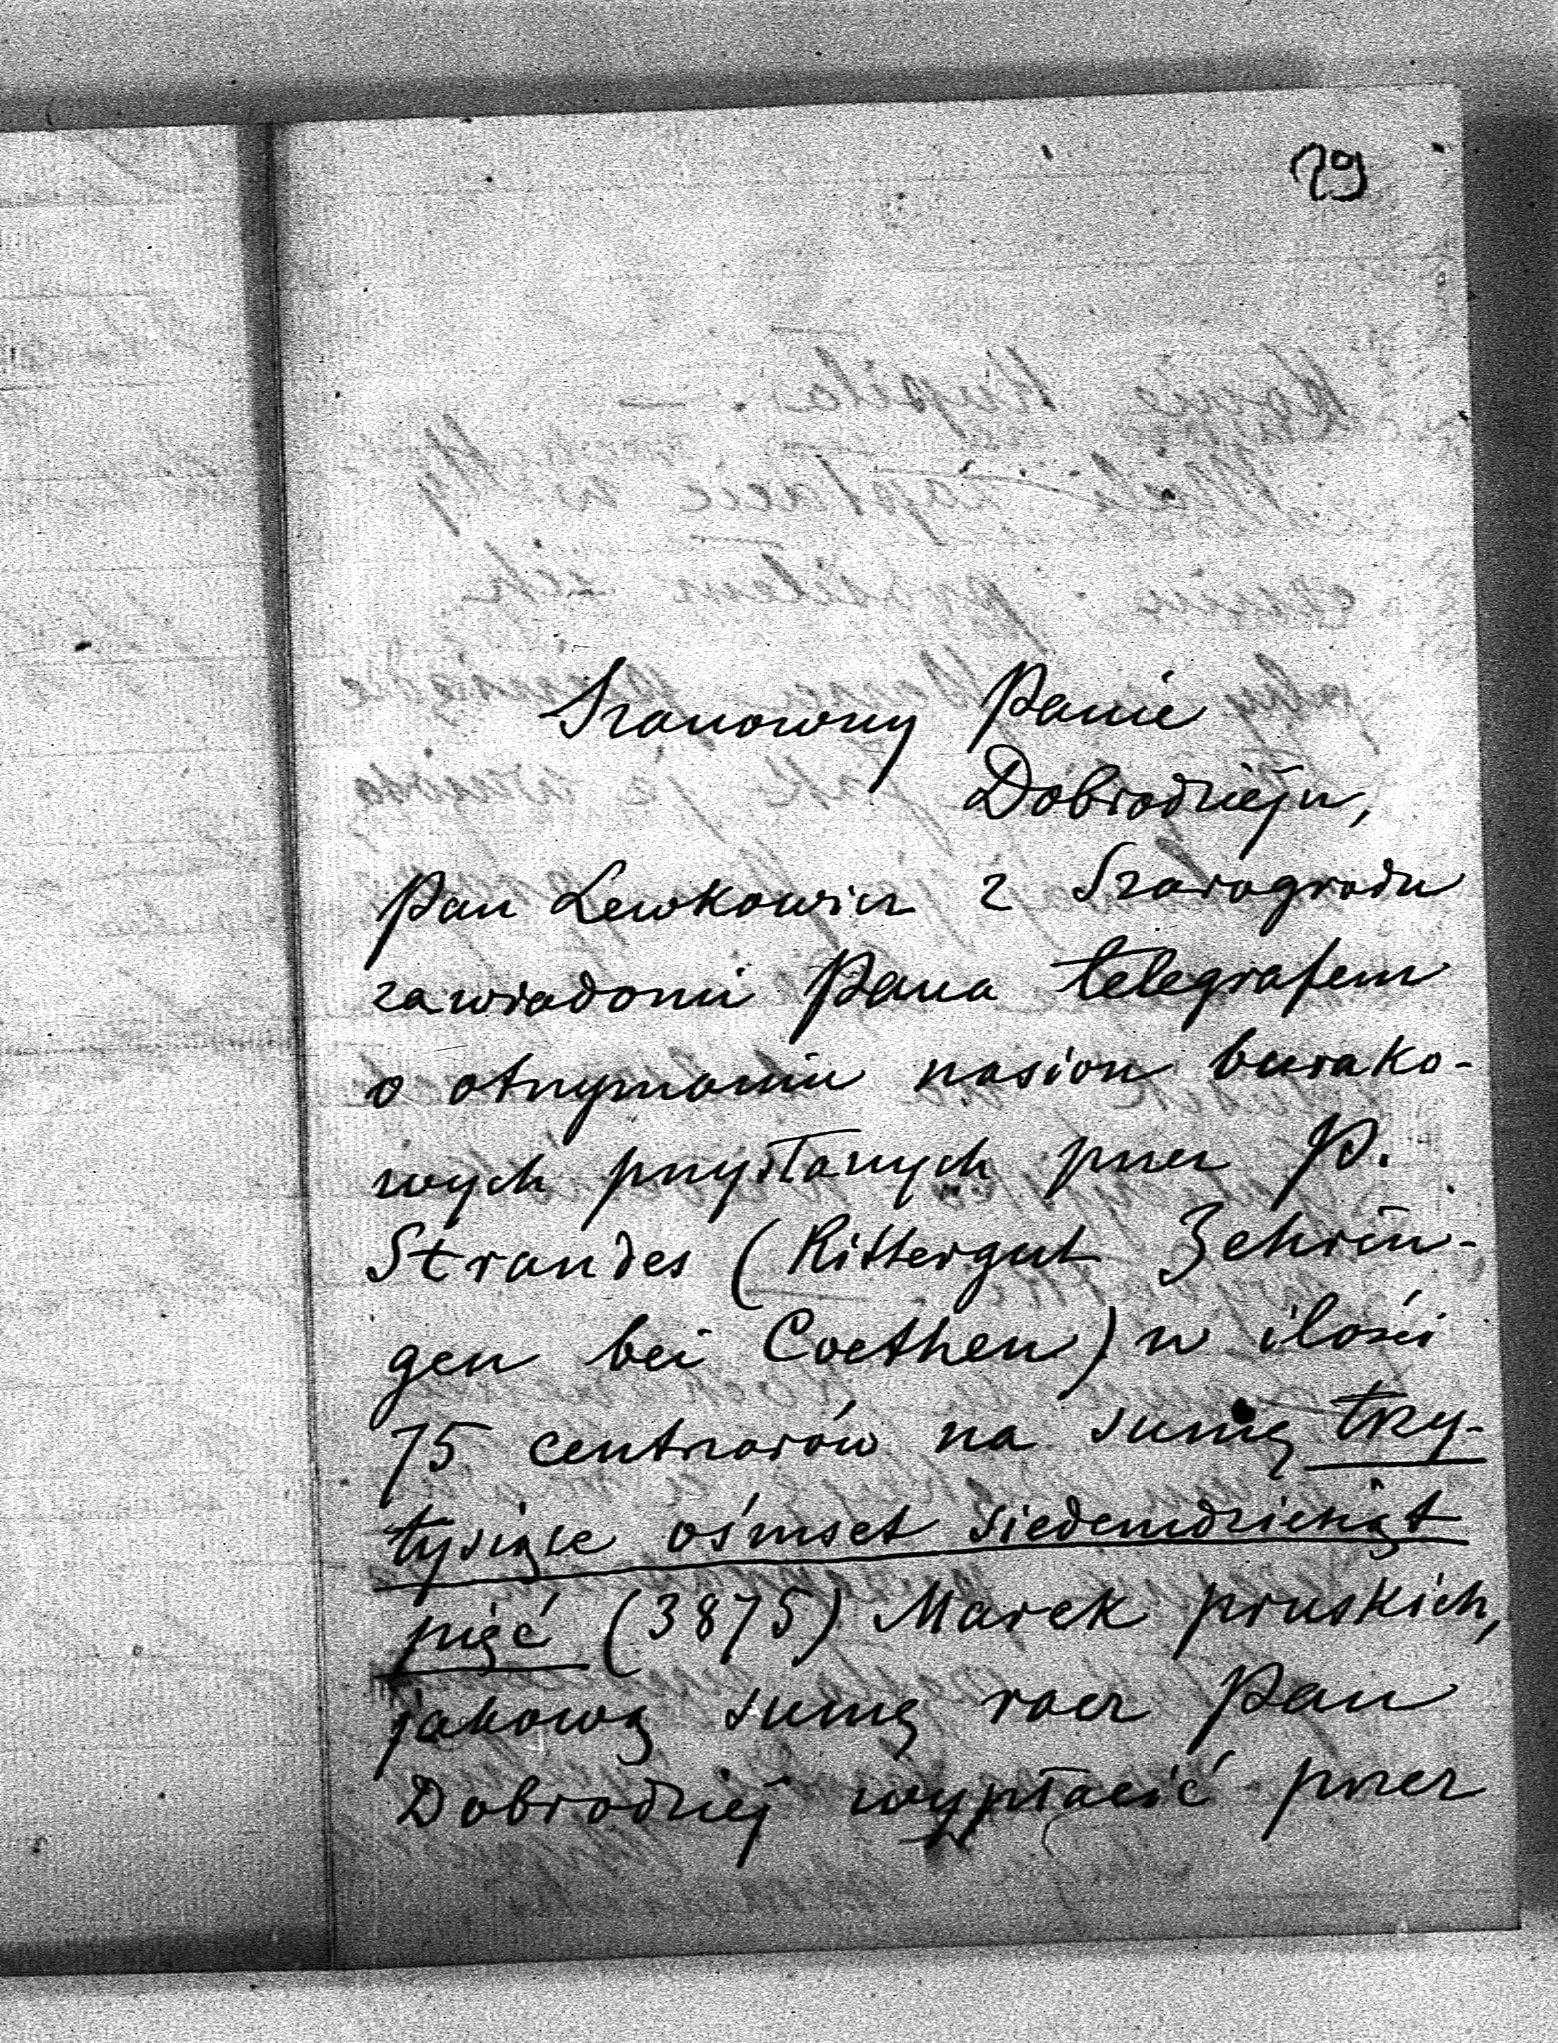 79
Szanowny Panie
Dobrodzieju,
Pan Lewkowicz z Szarogrodu
zawiadomi Pana telegrafem
o otrzymaniu nasion burako-
wych przysłanych przez P.
Strandes (Rittergut Zehrin-
gen bei Coethen) w ilości
75 centnarów na sumę trzy-
tysiące ośmset siedemdziesiąt
pięć (3875) Marek pruskich,
jakową sumę racz Pan
Dobrodziej wypłacić przez